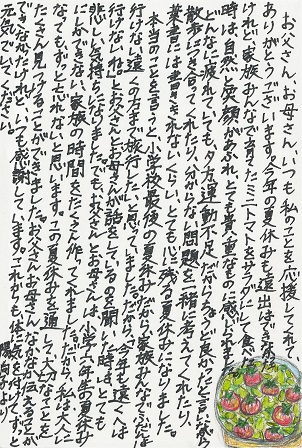 お父さん、お母さん、いつも私のことを応援してくれて
ありがとうございます。今年の夏休みも遠出はできな
けれど家族みんなで育てたミニトマトをサラダにして食べた
時は、自然と笑顔があふれ、とても貴重なものに感じられました。
どんなに疲れていても、夕方、運動不足だからちょうど良かったと言いながら
散歩に付き合ってくれたり、分からない問題を一緒に考えてくれたり、
葉書には書ききれないくらい、とても心に残る夏休みになりました。
本当のことを言うと、小学校最後の夏休みだから、家族みんなで
行けない遠くの方まで旅行したいと思っていました。だから、「今年も遠くへは
行けないね。」とお父さんとお母さんが話をしているのを聞いた時は、とても
悲しい気持ちになりました。でも、お父さんとお母さんは、小学六年生の夏休み
にしかできない、家族の時間をたくさん作ってくれました。だから、私は大人に
なってもずっと忘れないと思います。この夏休みを通して大切なことを
たくさん見つけることができました。お父さん、お母さん、なかなか伝えることが
できなかったけれど、いつも感謝しています。これからも体に気を付けて、ずっと
元気でいてください。
より